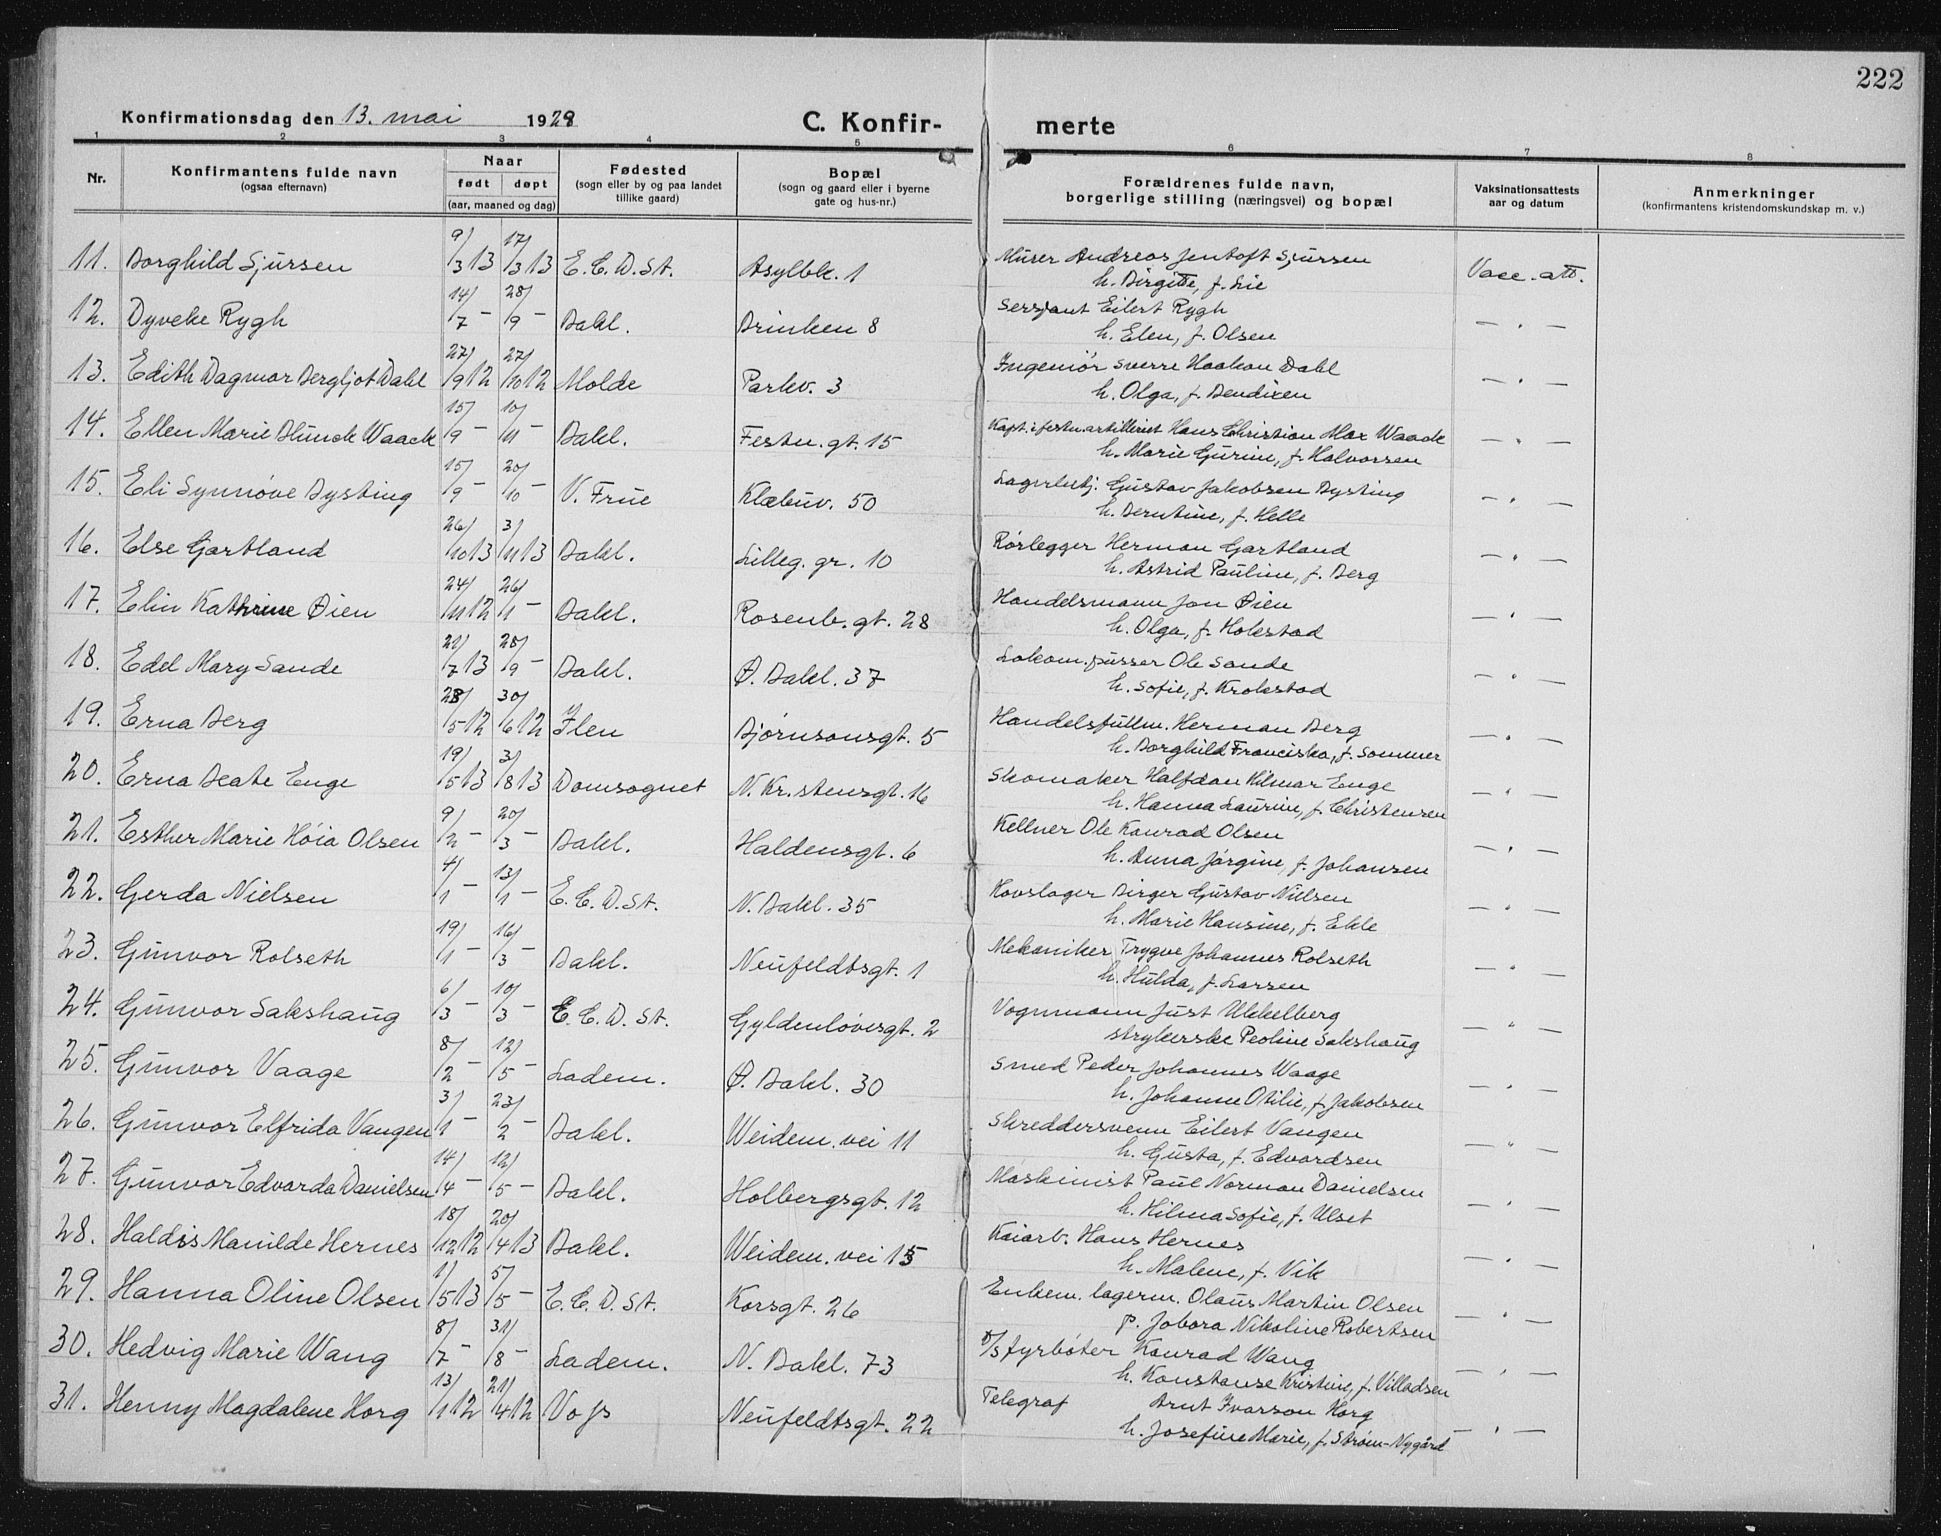 222
Konfirmationsdag den 13. mai 1928 C. Konfir- merte
1 2 3 4 5 6 7 8
Nr. Konfirmantens fulde navn (ogsaa efternavn) Naar født døpt (aar, maaned og dag) Fødested (sogn eller by og paa landet tillike gaard) Bopæl (sogn og gaard eller i byerne gate og hus-nr.) Forældrenes fulde navn, borgerlige stilling (næringsvei) og bopæl Vaksinationsattests aar og datum Anmerkninger (konfirmantens kristendomskundskap m. v.)
11. Borghild Sjursen 9/3 13 17/3 13 E.C.D.St. Asylbk. 1 Murer Andreas Jentoft Sjursen Vacc. att.
h. Birgitte, f. Lie
12. Dyveke Rygh 14/7 - 28/9 - Bakl. Brinken 8 Sersjant Eilert Rygh - " -
h. Elen, f. Olsen
13. Edith Dagmar Bergljot Dahl 27/9 12 27/10 12 Molde Parkv. 3 Ingeniör Sverre Haakon Dahl - " -
h. Olga, f. Bendixen
14. Ellen Marie Munck Waack 15/9 - 10/11 - Bakl. Festn. gt. 15 Kapt. i festn.artilleriet Hans Christian Max Waack - " -
h. Marie Gurine, f. Halvorsen
15. Eli Synnøve Dysting 15/9 - 20/10 - V. Frue Klæbuv. 50 Lagerbetj. Gustav Jakobsen Dysting - " -
h. Berntine, f. Helle
16. Else Gartland 26/10 13 3/11 13 Bakl. Lilleg. gr. 10 Rørlegger Herman Gartland - " -
h. Astrid Pauline, f. Berg
17. Elin Kathrine Øien 24/11 12 26/1 - Bakl. Rosenb. gt. 28 Handelsmann Jon Øien - " -
h. Olga, f. Hokstad
18. Edel Mary Sande 21/7 13 28/9 - Bakl. Ø. Bakl. 37 Lokom.pusser Ole Sande - " -
h. Sofie, f. Krokstad
19. Erna Berg 28/5 12 30/6 12 Ilen Bjørnsonsgt. 5 Handelsfullm. Herman Berg - " -
h. Borghild Franciska, f. Sommer
20. Erna Beate Enge 19/5 13 3/8 13 Domsognet N. Kr.stensgt. 16 Skomaker Halfdan Hilmar Enge - " -
h. Hanna Laurine, f. Christensen
21. Esther Marie Høia Olsen 9/2 - 20/3 - Bakl. Haldensgt. 6 Kellner Ole Konrad Olsen - " -
h. Anna Jørgine, f. Johansen
22. Gerda Nielsen 4/1 - 13/1 - E.C.D.St. N. Bakl. 35 Hovslager Birger Gustav Nielsen - " -
h. Marie Hansine, f. Ekle
23. Gunvor Rolseth 19/1 - 16/3 - Bakl. Neufeldtsgt. 1 Mekaniker Trygve Johannes Rolseth - " -
h. Hulda, f. Larsen
24. Gunvor Sakshaug 6/3 - 10/3 - E.C.D.St. Gyldenløvesgt. 2 Vognmann Just Ulkkelberg - " -
strykerske Peoline Sakshaug
25. Gunvor Vaage 8/2 - 12/5 - Ladem. Ø. Bakl. 30 Smed Peder Johannes Waage - " -
h. Johanne Otilie, f. Jakobsen
26. Gunvor Elfrida Vangen 3/1 - 23/2 - Bakl. Weidem. vei 11 Skreddersvenn Eilert Vangen - " -
h. Gusta, f. Edvardsen
27. Gunvor Edvarda Danielsen 14/4 - 12/5 - Bakl. Holbergsgt. 12 Maskinist Paul Norman Danielsen - " -
h. Hilma Sofie, f. Ulset
28. Haldis Manilde Hernes 18/12 12 20/4 13 Bakl. Weidem. vei 15 Kaiarb. Hans Hernes - " -
h. Malene, f. Vik
29. Hanna Oline Olsen 1/5 13 5/5 - E.C.D.St. Korsgt. 26 Enkem. lagerm. Olaus Martin Olsen - " -
p. Jobora Nikoline Robertsen
30. Hedvig Marie Wang 8/7 - 31/8 - Ladem. N. Bakl. 73 d/s fyrbøter Konrad Wang - " -
h. Konstanse Kristine, f. Villadsen
31. Henny Magdalene Horg 13/1 12 21/4 12 Voss Neufeldtsgt. 22 Telegraf Arnt Ivarson Horg - " -
h. Josefine Marie, f. Strøm-Nygård